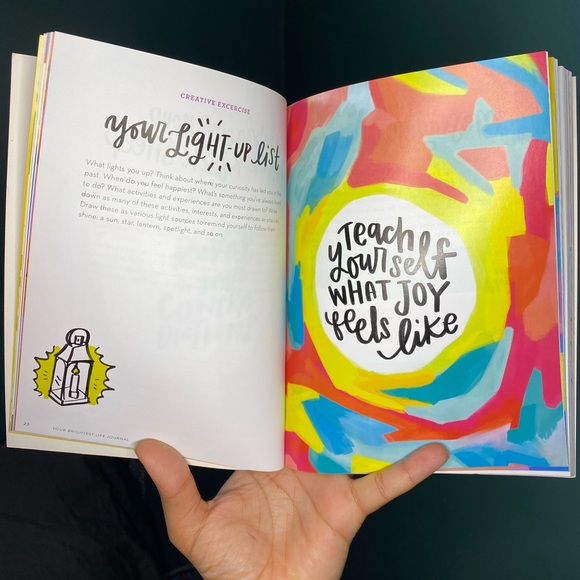 CREATIVE EXCERCISE
your LIGHT-UP list
What lights you up? Think about where your curiosity has led you in the
past. When do you feel happiest? What's something you've always
to do? What activities and experiences are you most drawn to? Write
down as many of these activities, interests, and experiences as you
Draw these as various light sources to remind yourself to follow their
shine: a sun, star, lantern, spotlight, and so on.
YOUR BRIGHTEST LIFE JOURNAL
Teach
yourself
WHAT JOY
feels
like